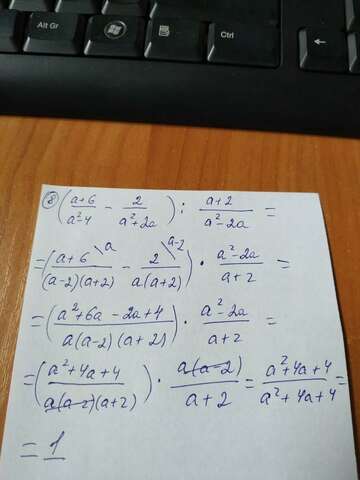 Alt Gr
Ctrl
←
⑧ (a+6/a²-4 - 2/a²+2a) : a+2/a²-2a =
= (a+6\a/(a-2)(a+2) - 2\a-2/a(a+2)) · a²-2a/a+2 =
= (a²+6a-2a+4/a(a-2)(a+2)) · a²-2a/a+2 =
= (a²+4a+4/a(a-2)(a+2)) · a(a-2)/a+2 = a²+4a+4/a²+4a+4 =
= 1